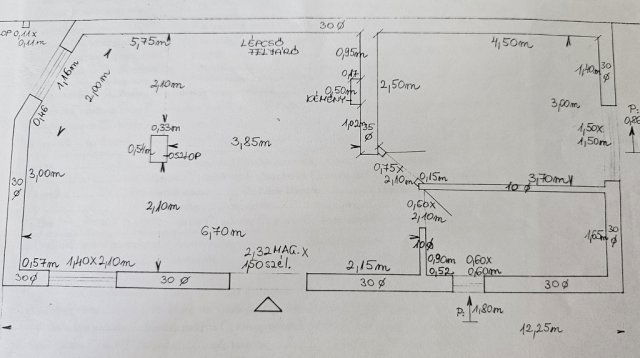 30 Ø
OP 0,11x
0,11m
5,75m
LÉPCSŐ
FELJÁRÓ
0,95m
4,50m
1,16m
2,00m
2,10m
0,17
0,50m
KÉMÉNY
2,50m
1,40m
30
Ø
3,00m
P:
0,86
0,46
0,33m
0,54m
OSZLOP
3,85m
1,02m
35
Ø
1,50x
1,50m
3,00m
30
Ø
0,75x
2,10m
0,15m
10 Ø
3,70m
2,10m
0,60x
2,10m
6,70m
10Ø
1,65m
30
Ø
2,32 MAG. X
1,50 szél.
0,57m
1,40x2,10m
2,15m
0,90m
0,52
0,60x
0,60m
30Ø
30 Ø
30 Ø
30 Ø
P:
1,80m
12,25m